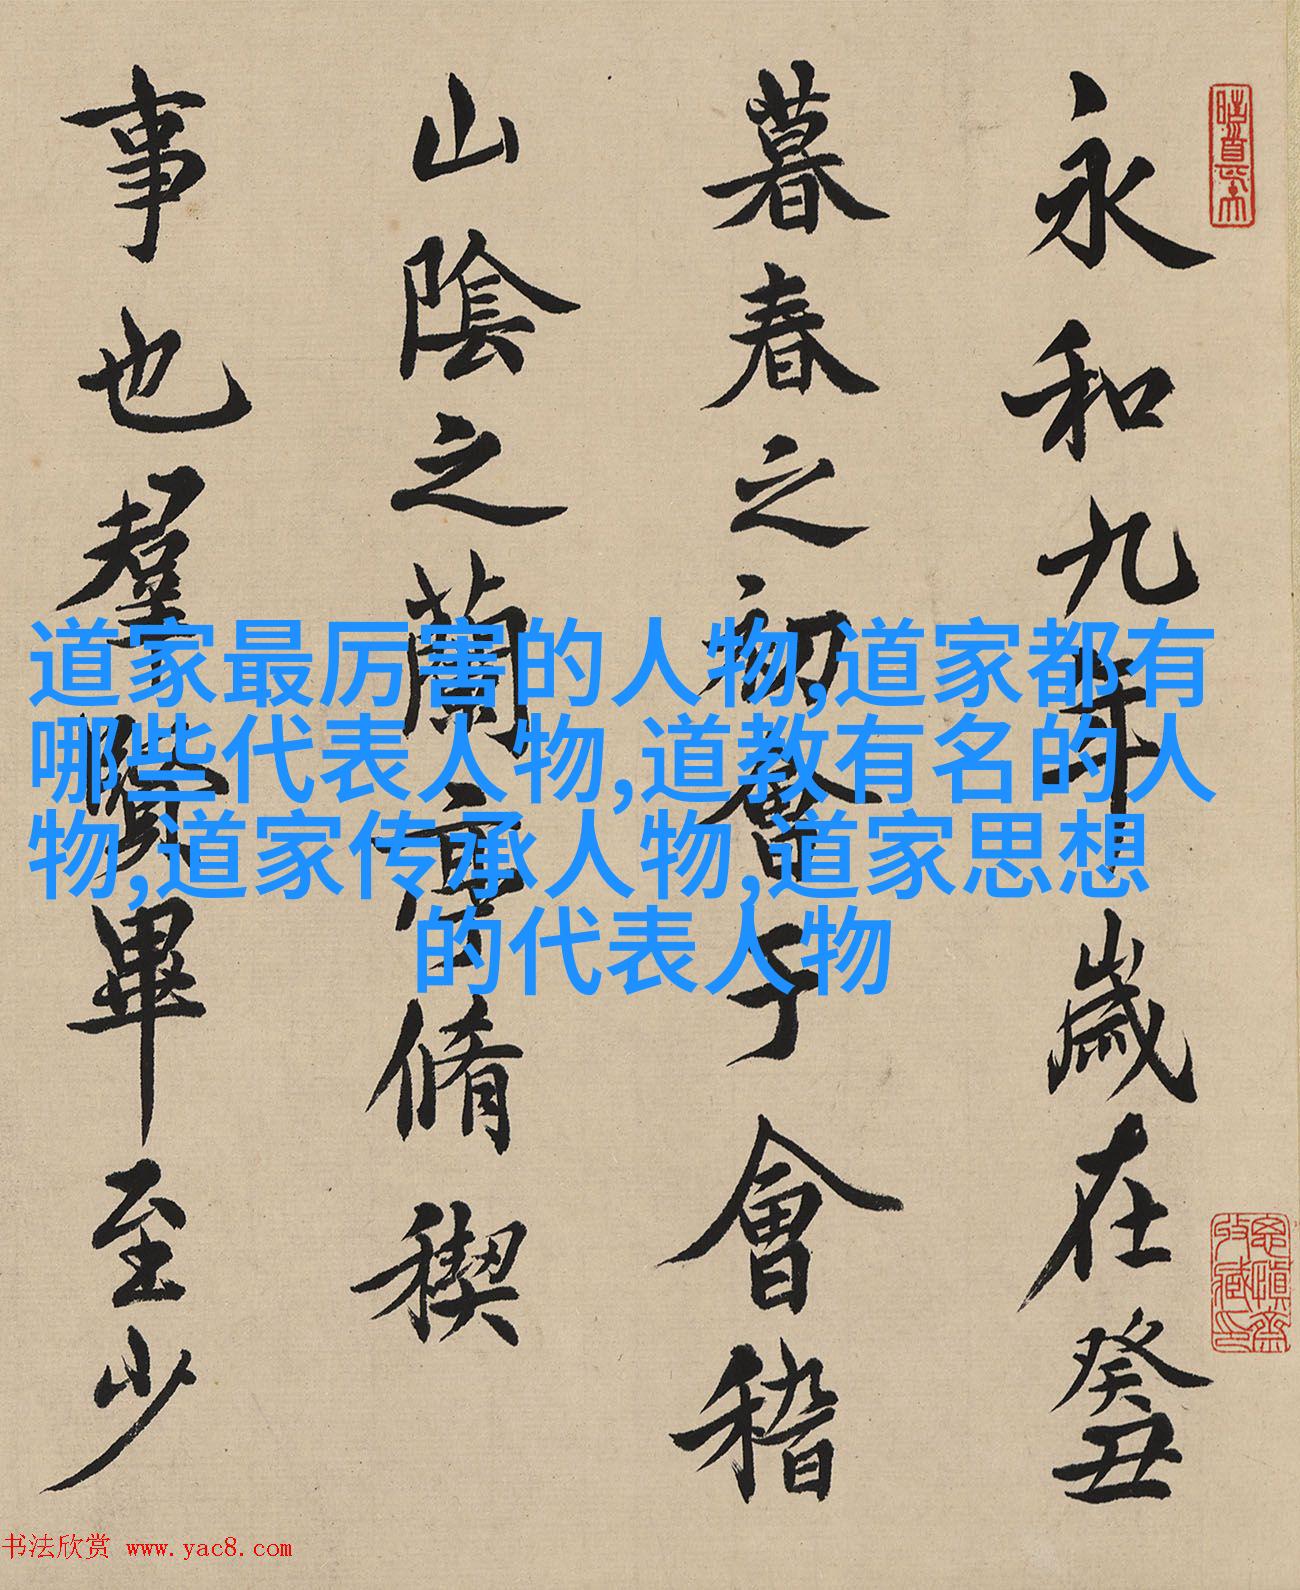 永和九年歲在癸丑
暮春之初會于會稽
山陰之蘭亭脩稧
事也羣賢畢至少
道家最厉害的人物,道家都有
哪些代表人物,道教有名的人
物,道家传承人物,道家思想
的代表人物
书法欣赏 www.yac8.com